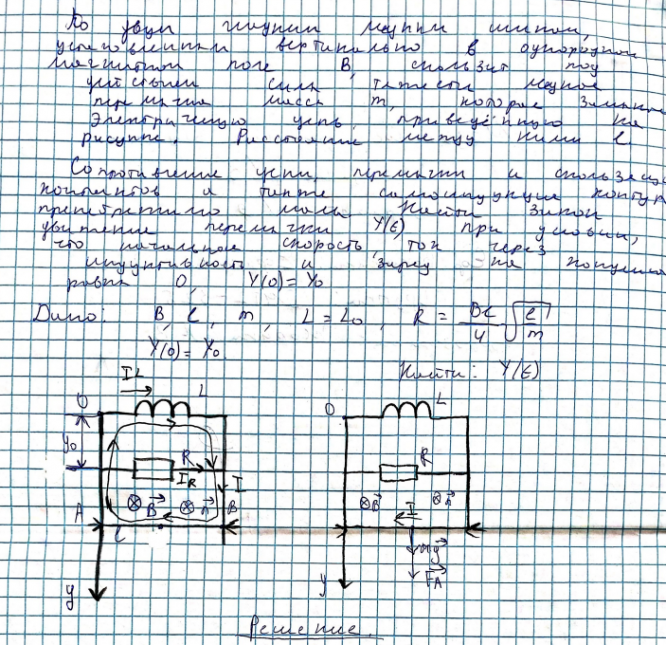 По двум гладким медным шинам,
установленным вертикально в однородном
магнитном поле B, скользит под
действием силы тяжести медная
перемычка массы m, которая замыкает
электрическую цепь, приведённую на
рисунке. Расстояние между ними l.
Сопротивление шин, перемычки и скользящих
контактов а также самоиндукция контура
пренебрежимо малы. Найти закон
движения перемычки Y(t) при условии,
что начальные скорость, ток через
индуктивность и заряд на
равны 0, Y(0) = Y0
Дано: B, l, m, L = L0, R = Bl/4 √(L/m)
Y(0) = Y0.
Найти: Y(t)
IL L
0 0 L
y0
R IR I R
A B n B B n I
l mg
FA
y y
Решение.